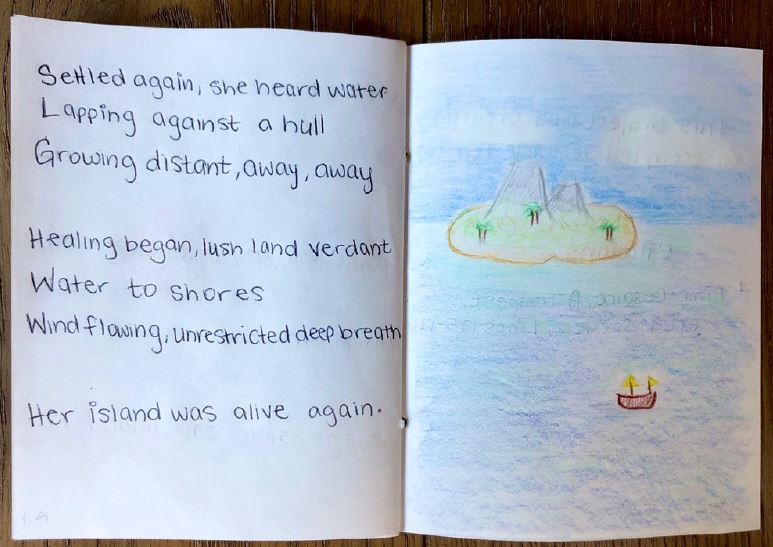 Settled again, she heard water
Lapping against a hull
Growing distant, away, away
Healing began, lush land verdant
Water to shores
Wind flowing, unrestricted deep breath
Her island was alive again.